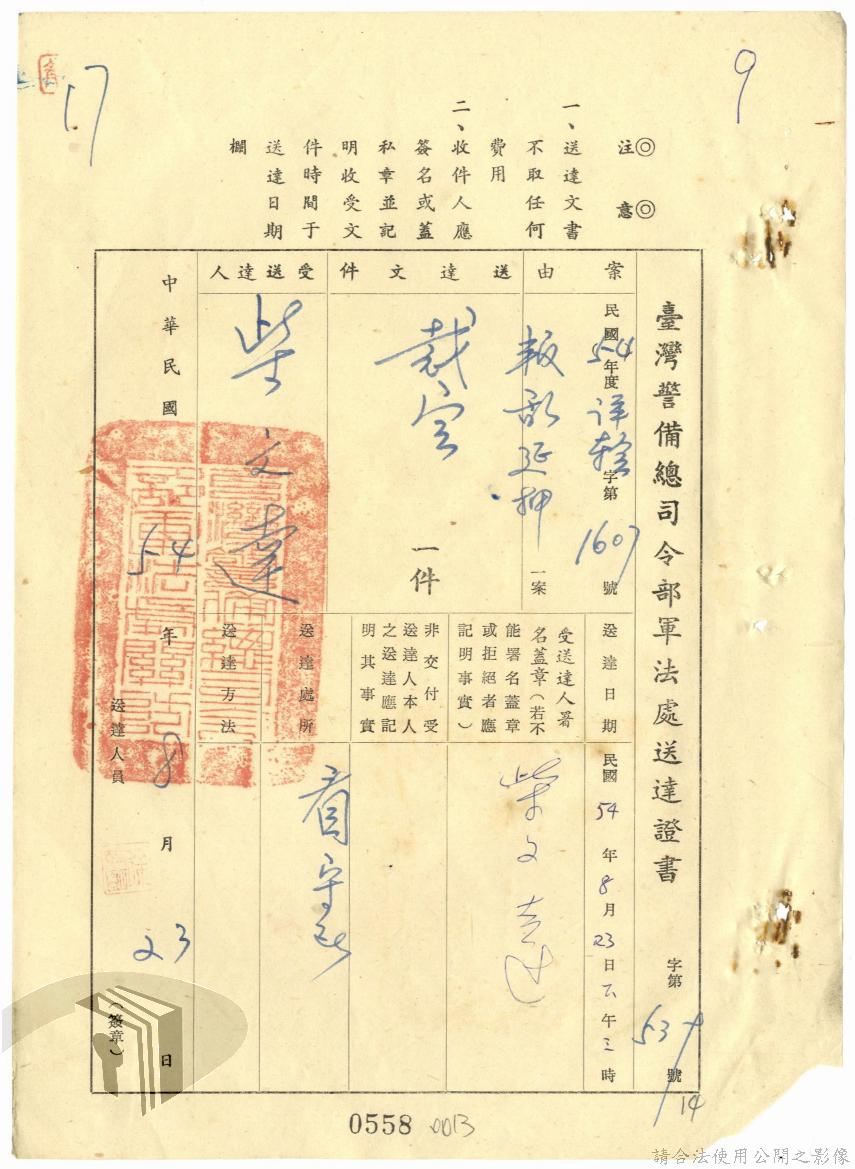 17
9
◎注意◎
一、送達文書
不取任何
費用
二、收件人應
簽名或蓋
私章並記
明收受文
件時間于
送達日期
欄
臺灣警備總司令部軍法處送達證書
字第 號
14
案由
民國54年度 字第1607號
叛亂延押
一案
送達文件
裁定
一件
受送達人
柴文達
送達日期
民國54年8月23日 午三時
受送達人署
名蓋章(若不
能署名蓋章
或拒絕者應
記明事實)
柴文達
非交付受
送達人本人
之送達應記
明其事實
送達處所
看守所
送達方法
中華民國54年8月23日
送達人員
(簽章)
0558
0013
請合法使用公開之影像